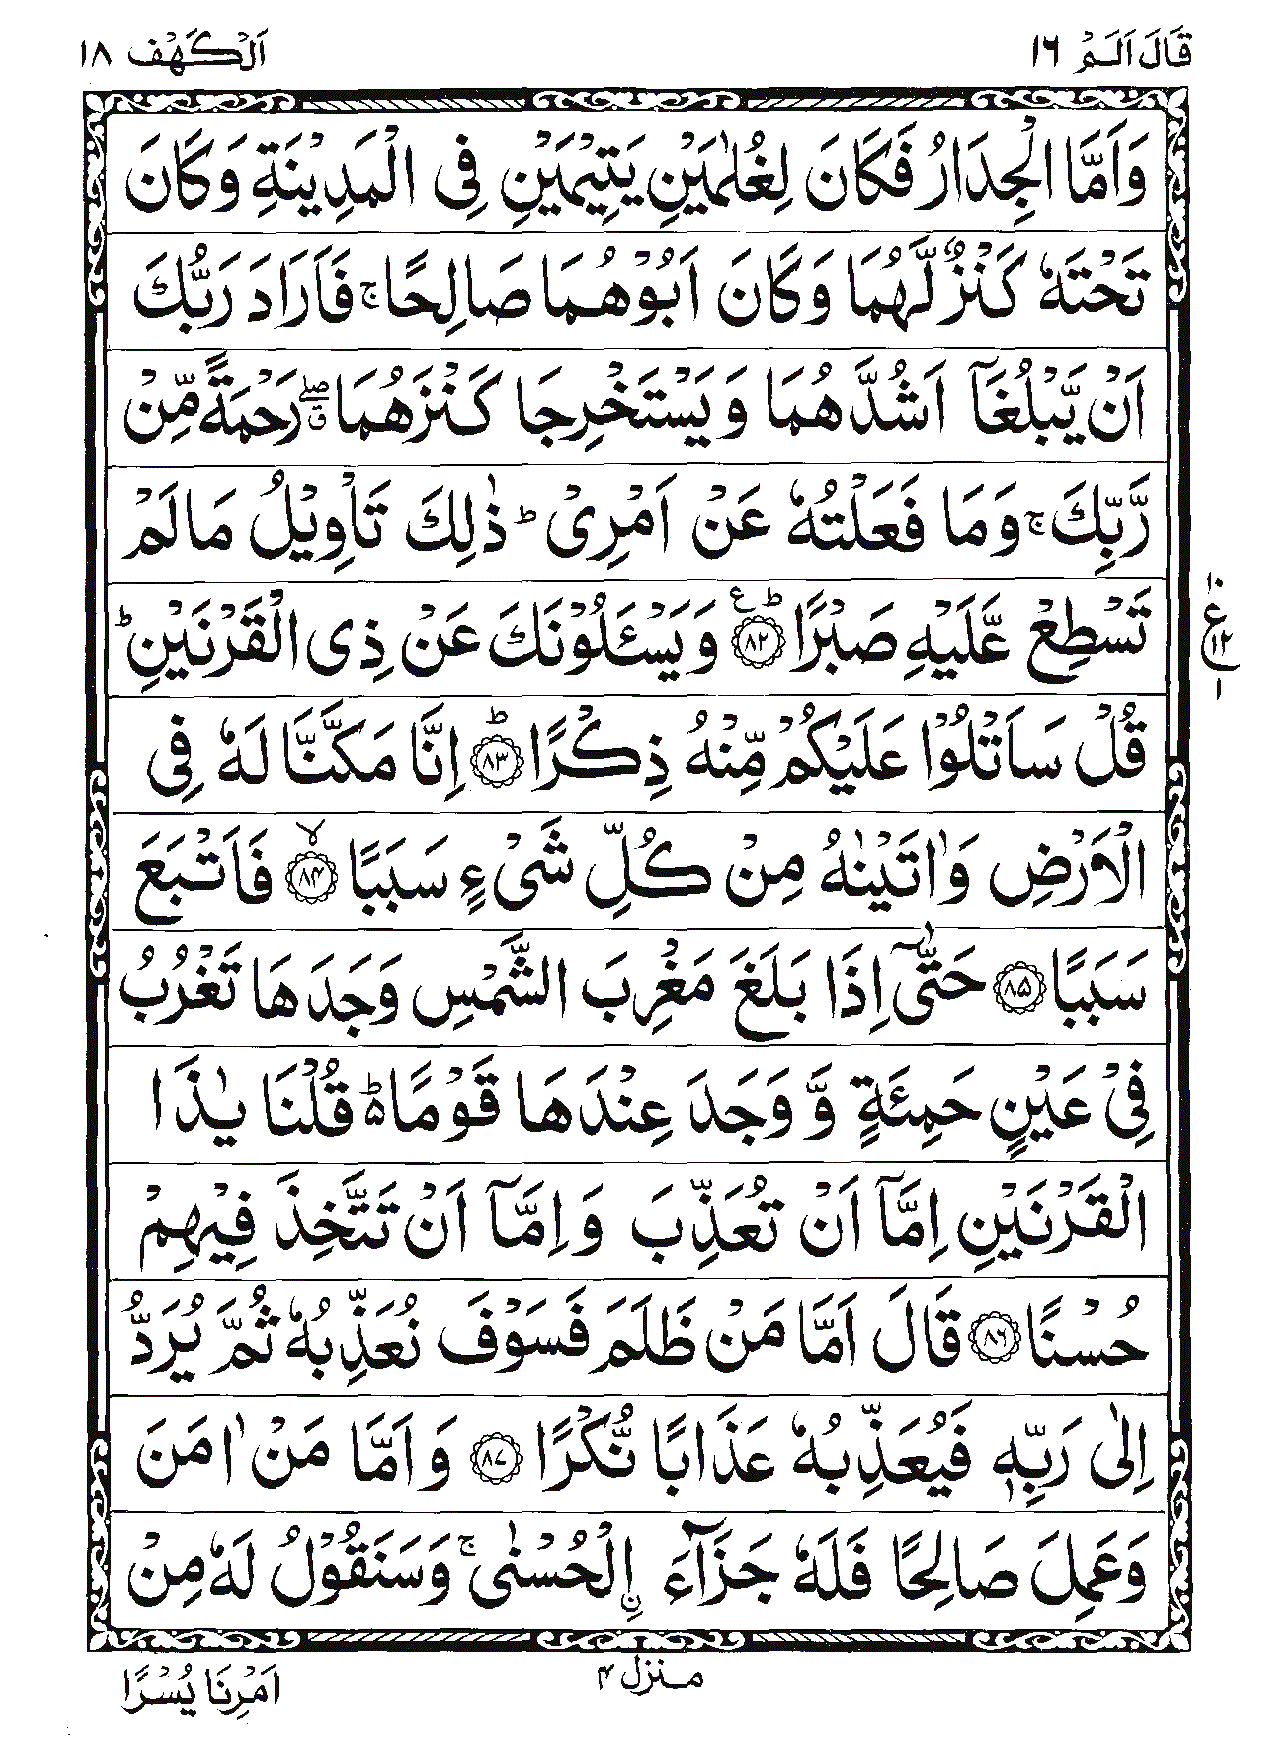 قَالَ اَلَمْ ١٦
اَلْكَهْف ١٨
وَاَمَّا الْجِدَارُ فَكَانَ لِغُلٰمَيْنِ يَتِيْمَيْنِ فِى الْمَدِيْنَةِ وَكَانَ
تَحْتَهٗ كَنْزٌ لَّهُمَا وَكَانَ اَبُوْهُمَا صَالِحًا ۚ فَاَرَادَ رَبُّكَ
اَنْ يَّبْلُغَاۤ اَشُدَّهُمَا وَيَسْتَخْرِجَا كَنْزَهُمَا ۖق رَحْمَةً مِّنْ
رَّبِّكَ ۚ وَمَا فَعَلْتُهٗ عَنْ اَمْرِىْ ؕ ذٰلِكَ تَاْوِيْلُ مَا لَمْ
تَسْطِعْ عَّلَيْهِ صَبْرًا ؕع ﴿٨٢﴾ وَيَسْـَٔلُوْنَكَ عَنْ ذِى الْقَرْنَيْنِ ؕ
١٠
ع
١٢
١
قُلْ سَاَتْلُوْا عَلَيْكُمْ مِّنْهُ ذِكْرًا ؕ ﴿٨٣﴾ اِنَّا مَكَّنَّا لَهٗ فِى
الْاَرْضِ وَاٰتَيْنٰهُ مِنْ كُلِّ شَىْءٍ سَبَبًا ۙ ﴿٨٤﴾ فَاَتْبَعَ
سَبَبًا ﴿٨٥﴾ حَتّٰىۤ اِذَا بَلَغَ مَغْرِبَ الشَّمْسِ وَجَدَهَا تَغْرُبُ
فِىْ عَيْنٍ حَمِئَةٍ وَّ وَجَدَ عِنْدَهَا قَوْمًا ؕ۬ قُلْنَا يٰذَا
الْقَرْنَيْنِ اِمَّاۤ اَنْ تُعَذِّبَ وَاِمَّاۤ اَنْ تَتَّخِذَ فِيْهِمْ
حُسْنًا ﴿٨٦﴾ قَالَ اَمَّا مَنْ ظَلَمَ فَسَوْفَ نُعَذِّبُهٗ ثُمَّ يُرَدُّ
اِلٰى رَبِّهٖ فَيُعَذِّبُهٗ عَذَابًا نُّكْرًا ﴿٨٧﴾ وَاَمَّا مَنْ اٰمَنَ
وَعَمِلَ صَالِحًا فَلَهٗ جَزَآءَ ۨالْحُسْنٰى ۚ وَسَنَقُوْلُ لَهٗ مِنْ
منزل ۴
اَمْرِنَا يُسْرًا